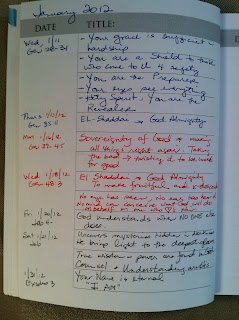 January 2012
DATE TITLE:
Wed 1/11 - Your grace is sufficient in
Gen 28-31 hardship
- You are a Shield to those
who come to U 4 safety
- You are the Preparer
- Your eyes see everything
- Holy Spirit - You are the
Revealer
Thurs 1/12/12 EL-Shaddai → God Almighty
Gen 35:5
Mon 1/16/12 Sovereignty of God → making
Gen 37-45 all things right again. Taking
the bad → twisting it to be used
for good
Wed 1/18/12 El Shaddai → God Almighty
Gen 48:3 To make fruitful and
No eye has seen, No ear has heard
No mind can conceive what God will do
on behalf of
Fri 1/20/12 God understands when NO ONE else
Job does.
Sat 1/21/12 Uncovers mysteries hidden in darkness
Job He brings light to the deepest
True wisdom & power are found in God
Counsel & Understanding are His
1/31/12 Your Name is eternal
Exodus 3 "I AM"